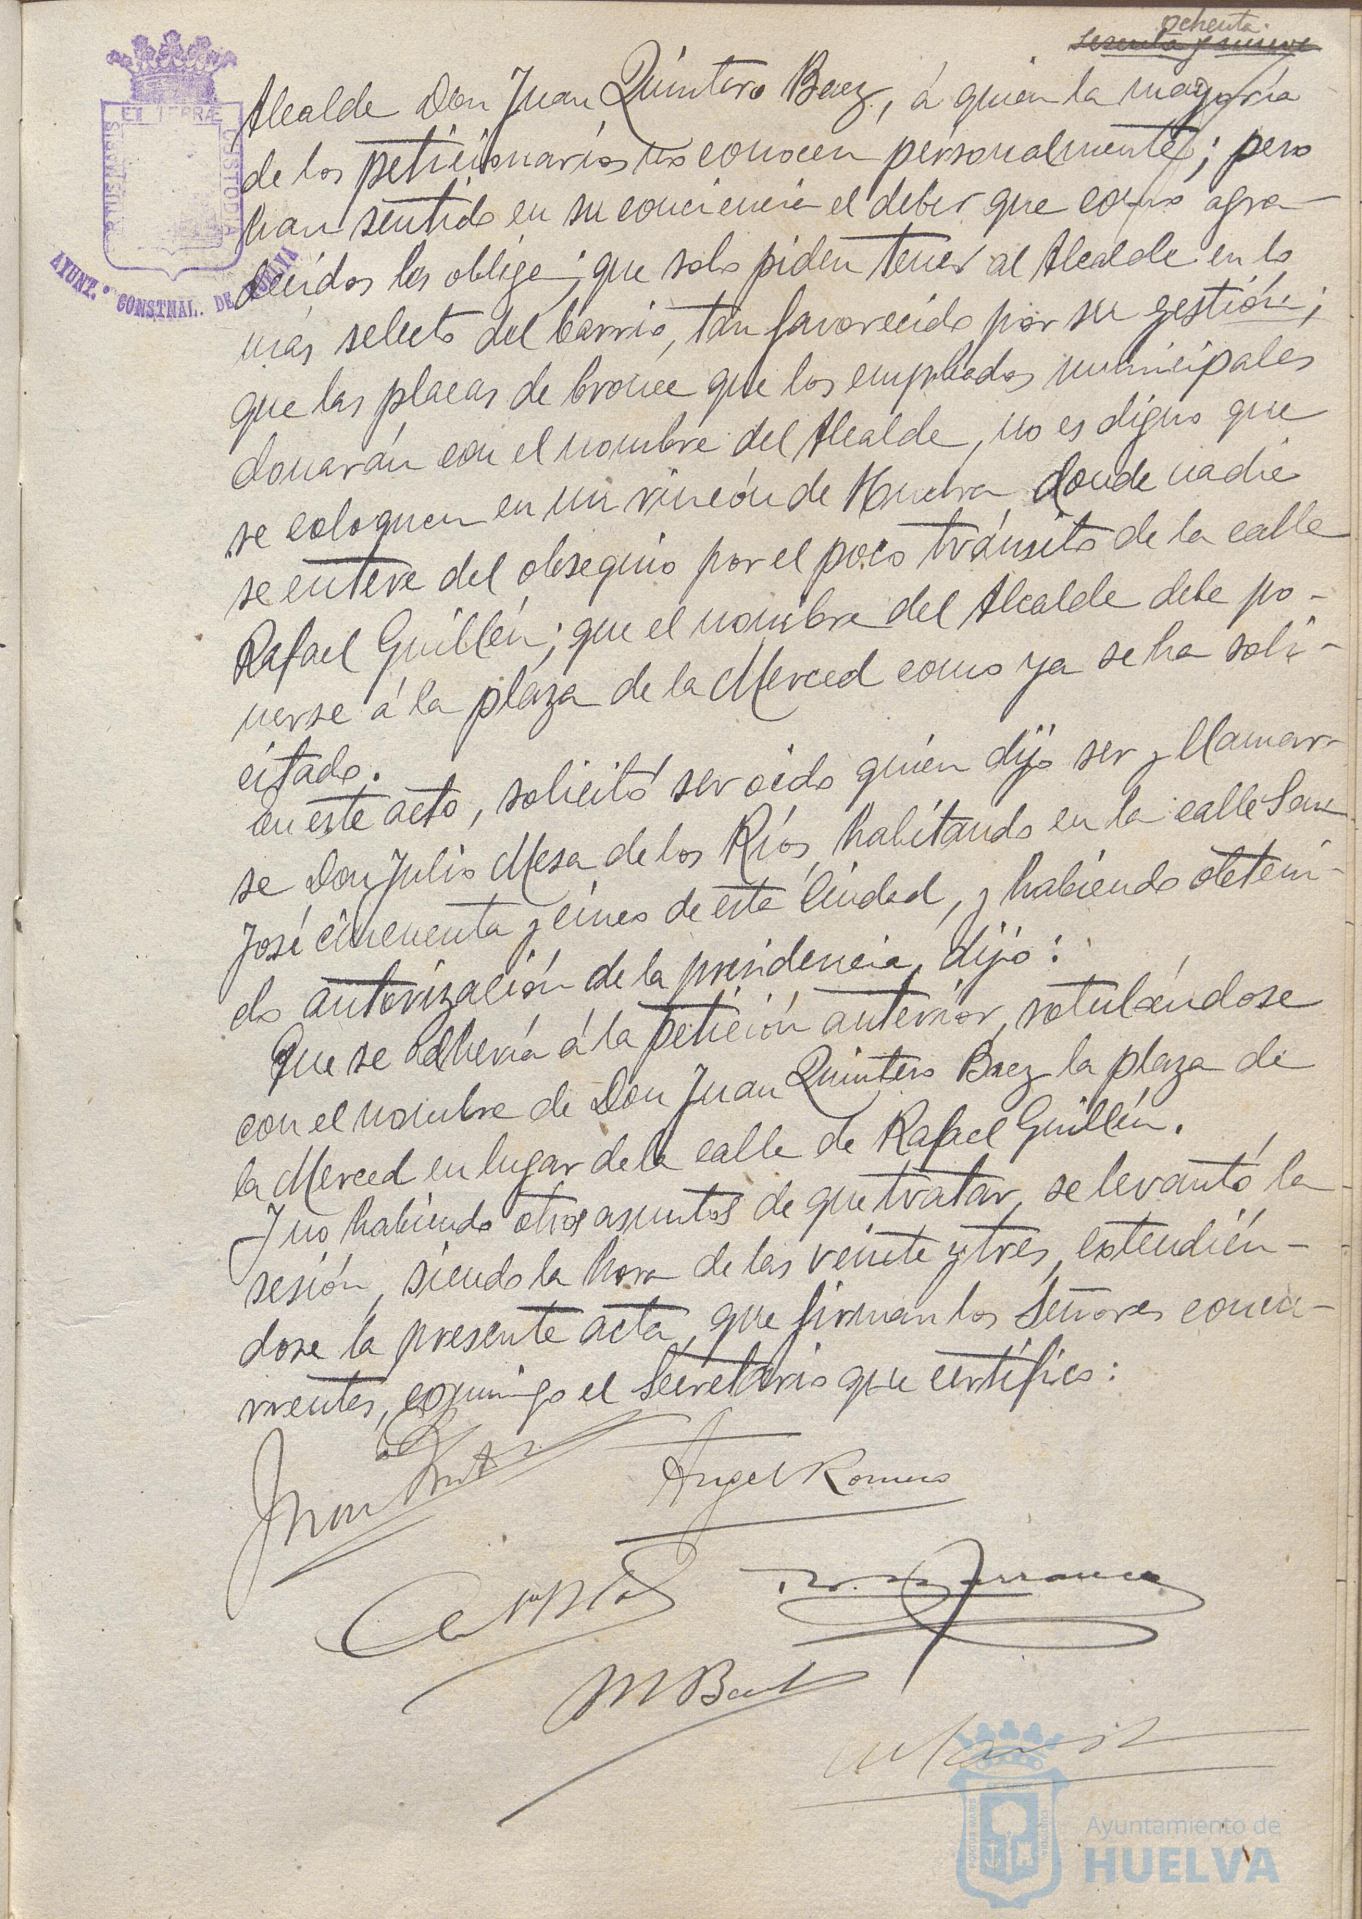 ochenta
sesenta y nueve
PORTUS MARIS
ET TERRÆ
CUSTODIA
AYUNT.º CONSTNAL. DE HUELVA
Alcalde Don Juan Quintero Baez, á quien la mayoría
de los peticionarios no conocen personalmente; pero
han sentido en su conciencia el deber que como agra-
decidos les obliga; que solo piden tener al Alcalde en lo
más selecto del barrio, tan favorecido por su gestión;
que las placas de bronce que los empleados municipales
donarán con el nombre del Alcalde, no es digno que
se coloquen en un rincón de Huelva donde nadie
se entere del obsequio por el poco tránsito de la calle
Rafael Guillén; que el nombre del Alcalde debe po-
nerse á la plaza de la Merced como ya se ha soli-
citado.
En este acto, solicitó ser oido quien dijo ser y llamar-
se Don Julio Mesa de los Ríos, habitando en la calle San
José cincuenta y cinco de esta Ciudad, y habiendo obteni-
do autorización de la presidencia, dijo:
Que se adhería á la petición anterior, rotulándose
con el nombre de Don Juan Quintero Baez la plaza de
la Merced en lugar de la calle de Rafael Guillén.
Y no habiendo otros asuntos de que tratar, se levantó la
sesión, siendo la hora de las veinte y tres, extendién-
dose la presente acta, que firman los Señores concu-
rrentes, conmigo el Secretario que certifico:
Juan Quintero
Angel Romero
M Bart
Ayuntamiento de
HUELVA